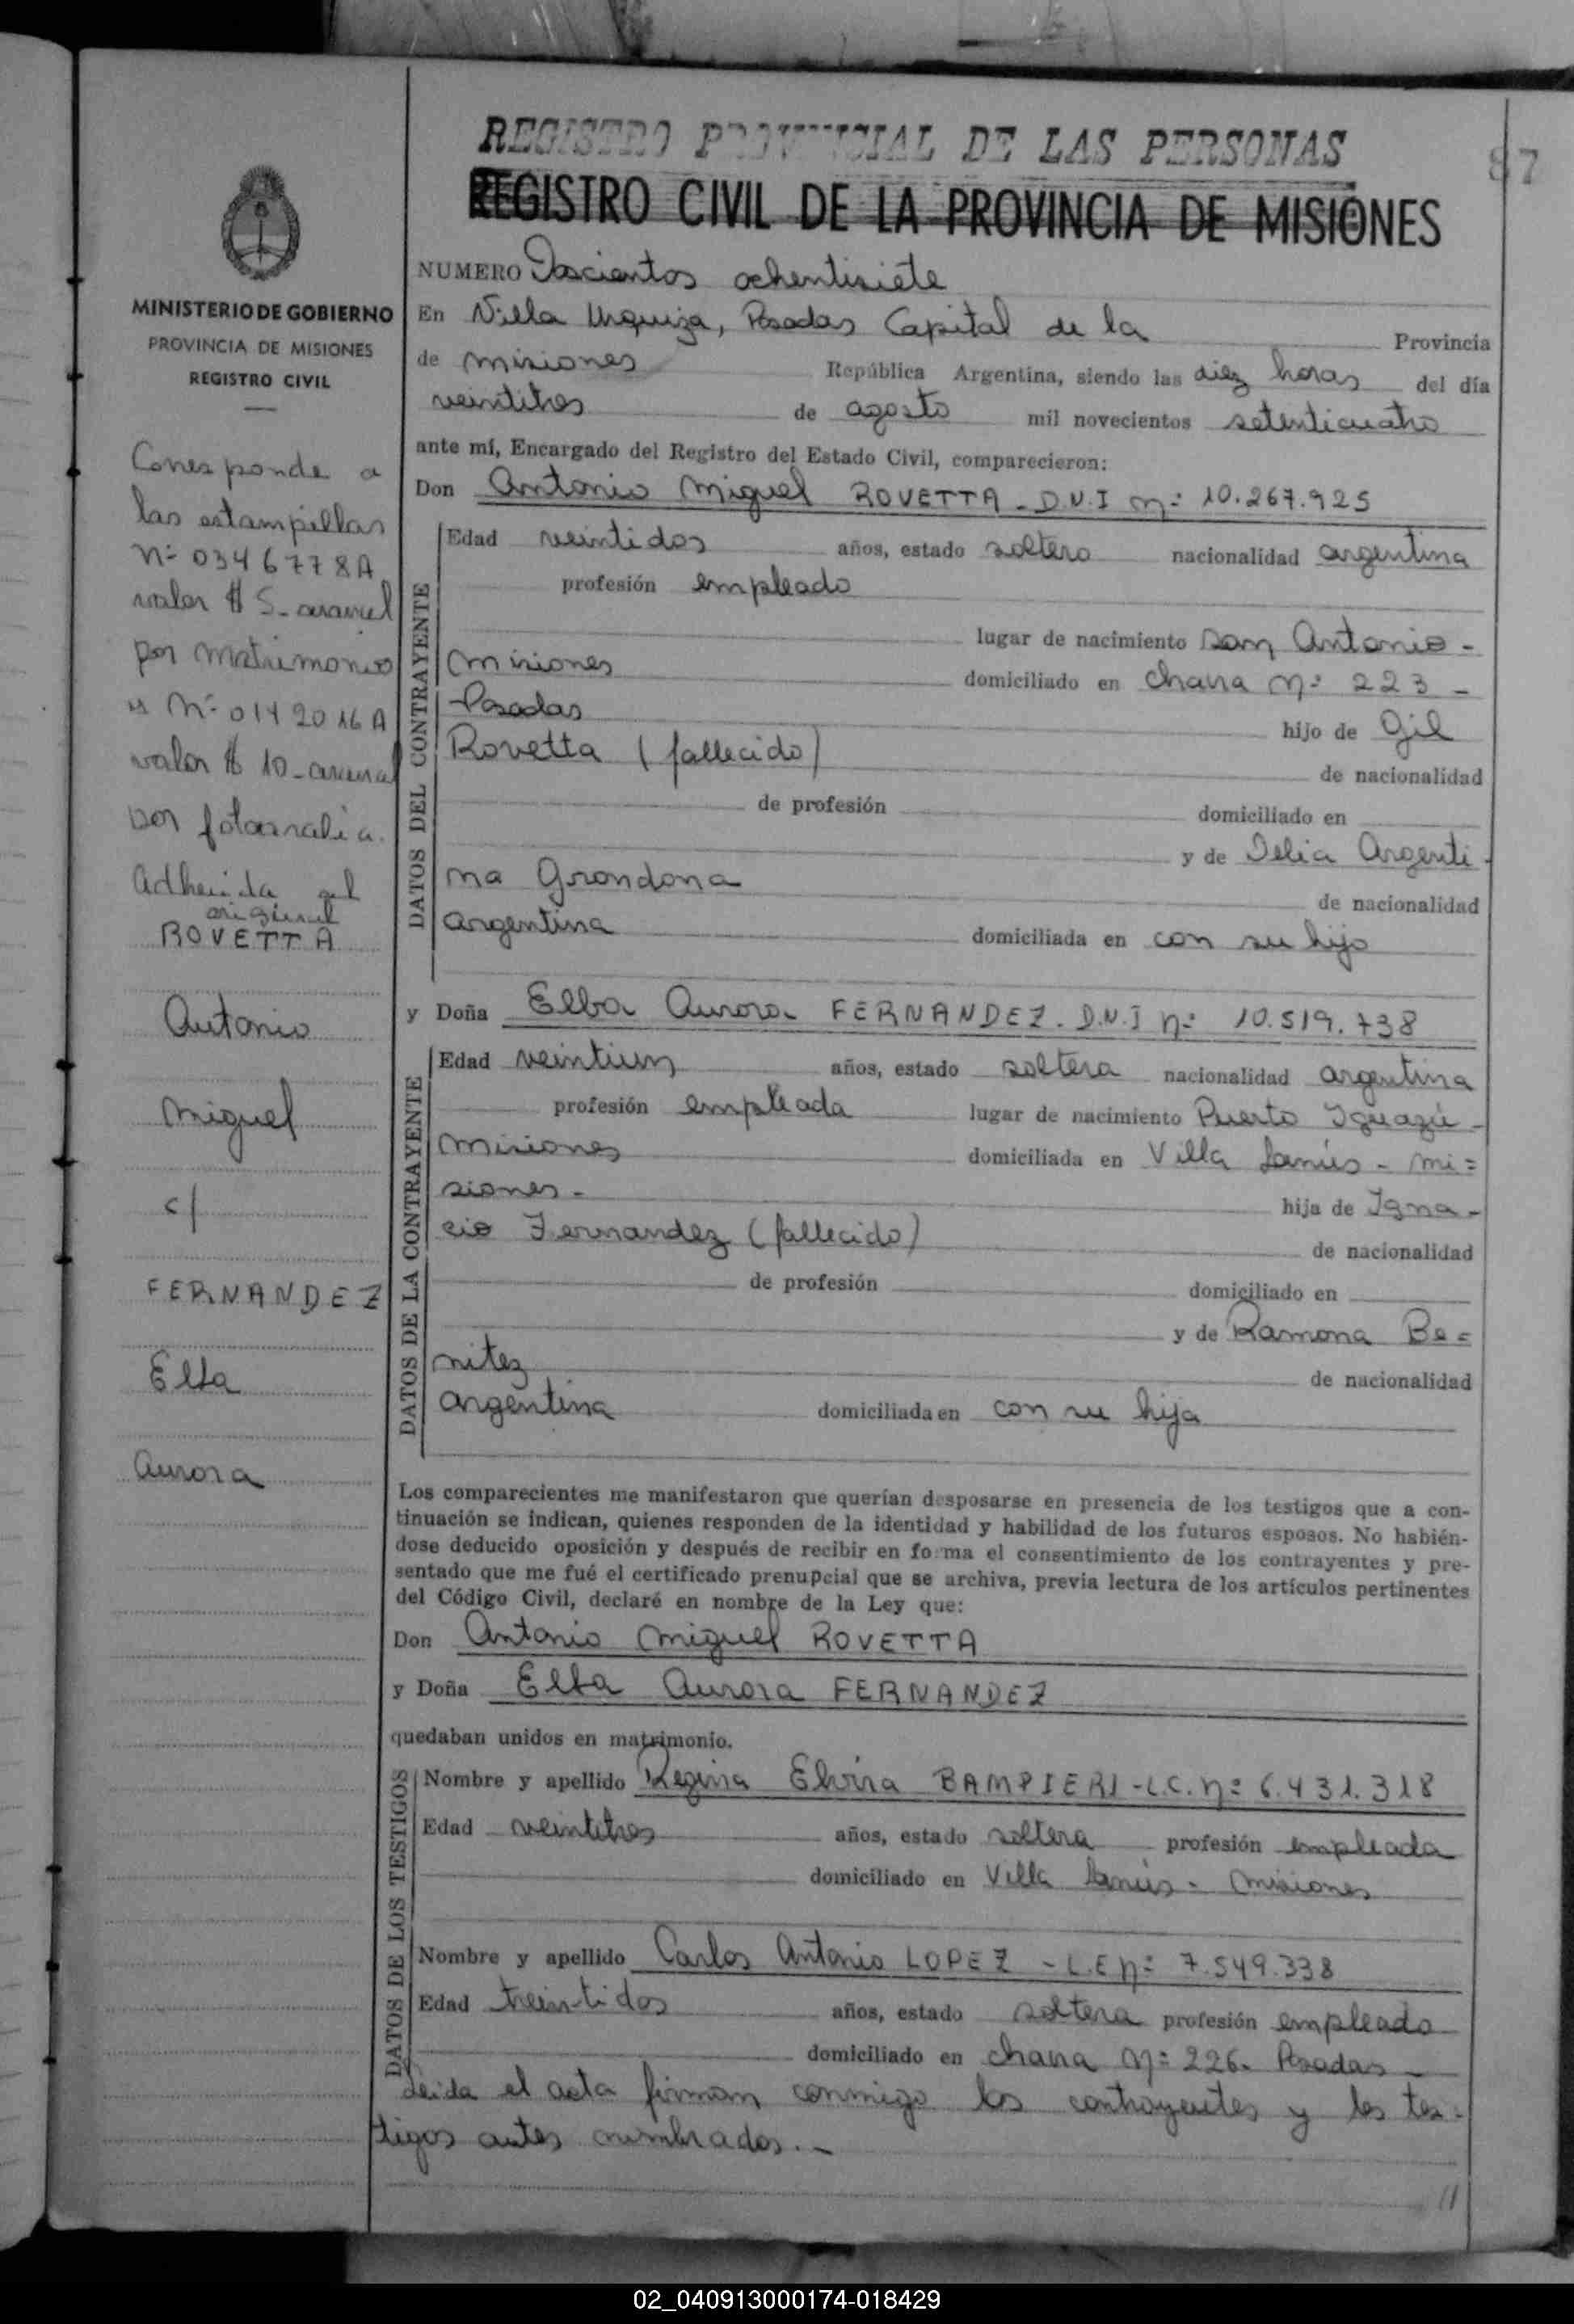 REGISTRO PROVINCIAL DE LAS PERSONAS
87
REGISTRO CIVIL DE LA PROVINCIA DE MISIONES
MINISTERIO DE GOBIERNO
PROVINCIA DE MISIONES
REGISTRO CIVIL
Corresponde a
las estampillas
nº 0346778A
valor $ 5_ arancel
por matrimonio
y Nº 0142016A
valor $ 10_ arancel
por fotocopia.
Adherida al
original
ROVETTA
Antonio
Miguel
c/
FERNANDEZ
Elba
Aurora
NUMERO Doscientos ochentisiete
En Villa Urquiza, Posadas Capital de la Provincia
de misiones República Argentina, siendo las diez horas del día
veintitres de agosto mil novecientos setenticuatro
ante mí, Encargado del Registro del Estado Civil, comparecieron:
Don Antonio Miguel ROVETTA - D.N.I nº 10.267.925
DATOS DEL CONTRAYENTE
Edad veintidos años, estado soltero nacionalidad argentina
profesión empleado
lugar de nacimiento San Antonio -
Misiones domiciliado en chava Nº 223 -
-Posadas hijo de Gil
Rovetta (fallecido) de nacionalidad
de profesión domiciliado en
y de Delia Argenti-
na Grondona de nacionalidad
argentina domiciliada en con su hijo
y Doña Elba Aurora FERNANDEZ. D.N.I nº 10.519.738
DATOS DE LA CONTRAYENTE
Edad veintiun años, estado soltera nacionalidad argentina
profesión empleada lugar de nacimiento Puerto Iguazú -
Misiones domiciliada en Villa Lanús - Mi=
siones - hija de Igna-
cio Fernandez (fallecido) de nacionalidad
de profesión domiciliado en
y de Ramona Be=
nitez de nacionalidad
argentina domiciliada en con su hija
Los comparecientes me manifestaron que querían desposarse en presencia de los testigos que a con-
tinuación se indican, quienes responden de la identidad y habilidad de los futuros esposos. No habién-
dose deducido oposición y después de recibir en forma el consentimiento de los contrayentes y pre-
sentado que me fué el certificado prenupcial que se archiva, previa lectura de los artículos pertinentes
del Código Civil, declaré en nombre de la Ley que:
Don Antonio Miguel ROVETTA
y Doña Elba Aurora FERNANDEZ
quedaban unidos en matrimonio.
DATOS DE LOS TESTIGOS
Nombre y apellido Regina Elvira BAMPIERI - L.C. Nº 6.431.318
Edad veintitres años, estado soltera profesión empleada
domiciliado en Villa Lanús - Misiones
Nombre y apellido Carlos Antonio LOPEZ - L.E Nº 7.549.338
Edad treintidos años, estado soltera profesión empleado
domiciliado en chava Nº 226. Posadas -
Leida el acta firman conmigo los contrayentes y los tes=
tigos antes nombrados. -
//
02_040913000174-018429